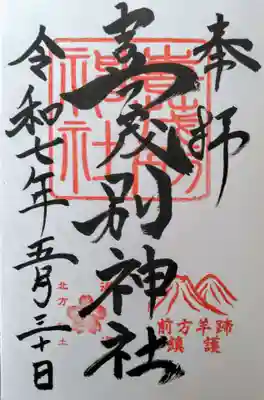 奉拝
喜茂別神社
令和七年五月三十日
喜茂別
神社
前方羊蹄
鎮護